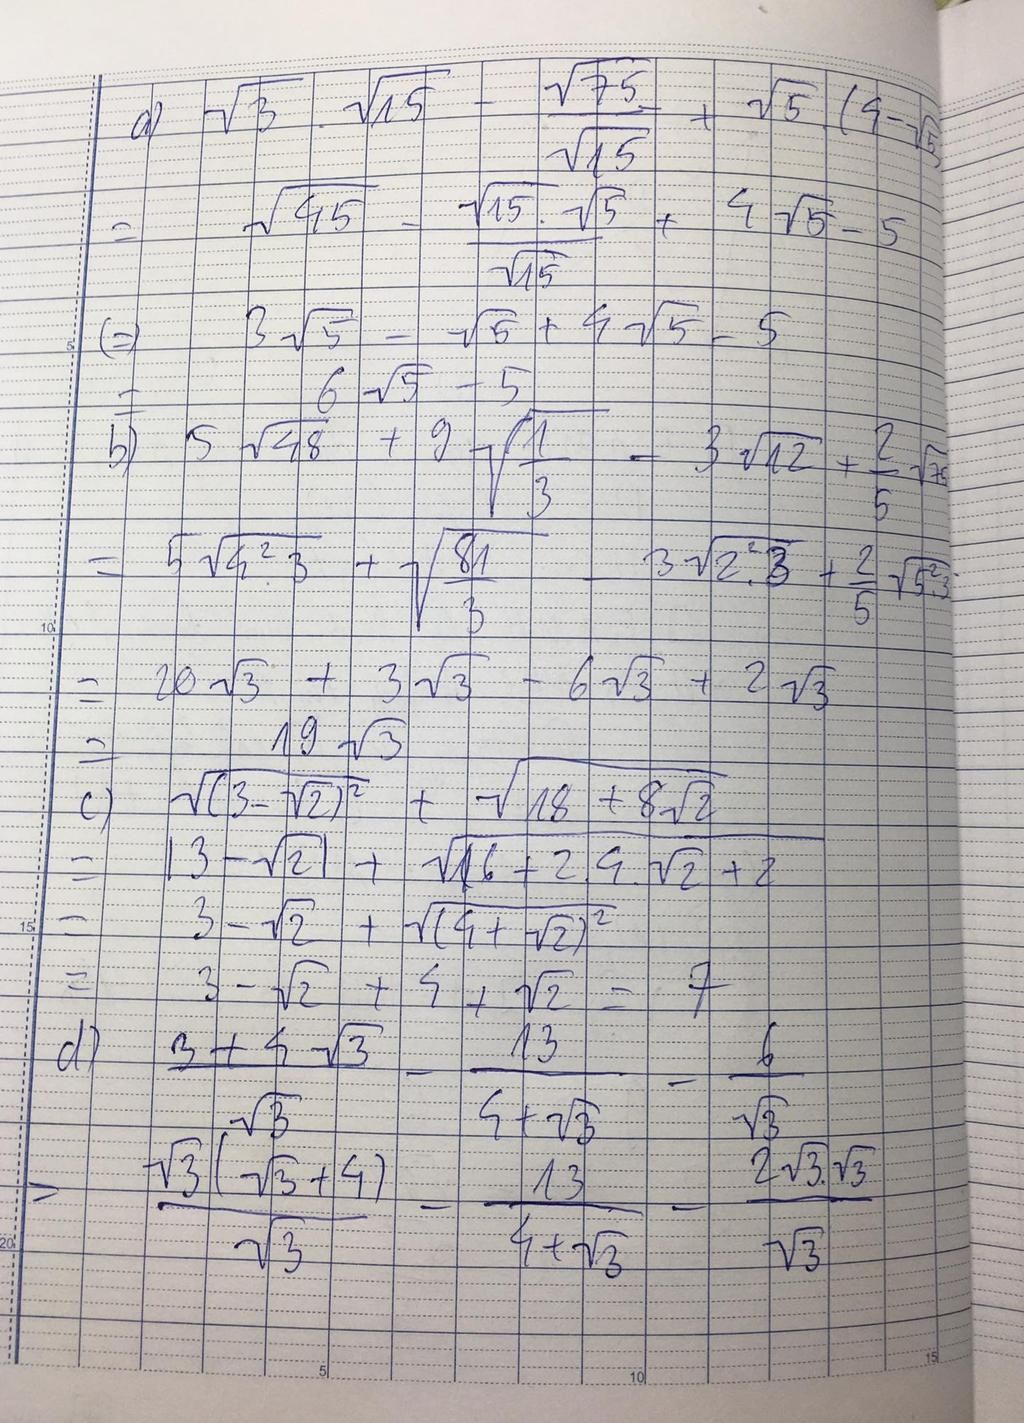 a) √3 . √15 - √75/√15 + √5 . (4-√5
= √45 - (√15 . √5)/√15 + 4√5 - 5
(=) 3√5 - √5 + 4√5 - 5
= 6√5 - 5
b) 5√48 + 9√(1/3) - 3√12 + 2/5 √75
= 5√(4².3) + √(81/3) - 3√(2².3) + 2/5 √(5².3)
= 20√3 + 3√3 - 6√3 + 2√3
= 19√3
c) √((3-√2)²) + √(18 + 8√2)
= |3-√2| + √(16 + 2.4.√2 + 2)
= 3-√2 + √((4+√2)²)
= 3-√2 + 4 + √2 = 7
d) (3 + 4√3)/√3 - 13/(4+√3) - 6/√3
= √3(√3+4)/√3 - 13/(4+√3) - (2√3.√3)/√3
5
10
15
20
5
10
15